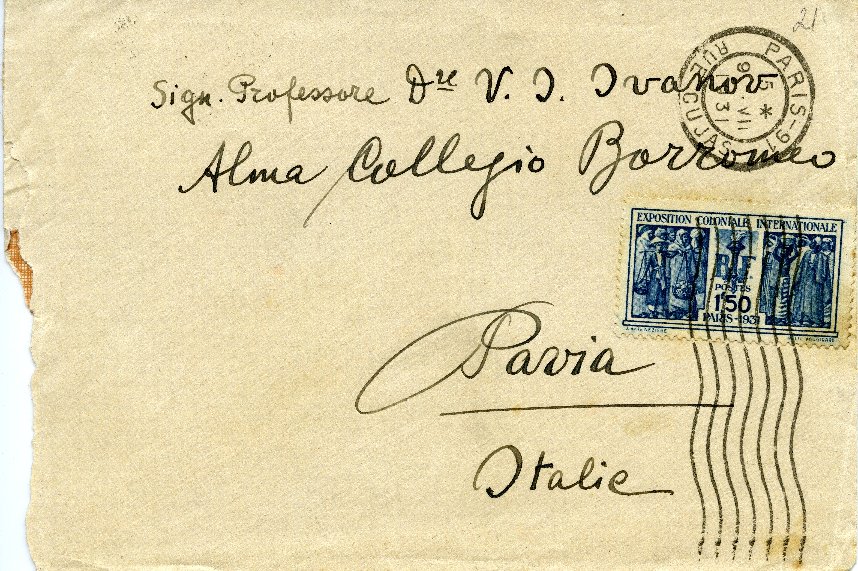 21
PARIS-91
RUE CUJAS
15 * VII
31
Sign. Professore Dre V. I. Ivanov
Alma Collegio Borromeo
EXPOSITION COLONIALE INTERNATIONALE
R.F.
POSTES
1.50
PARIS-1931
Pavia
Italie